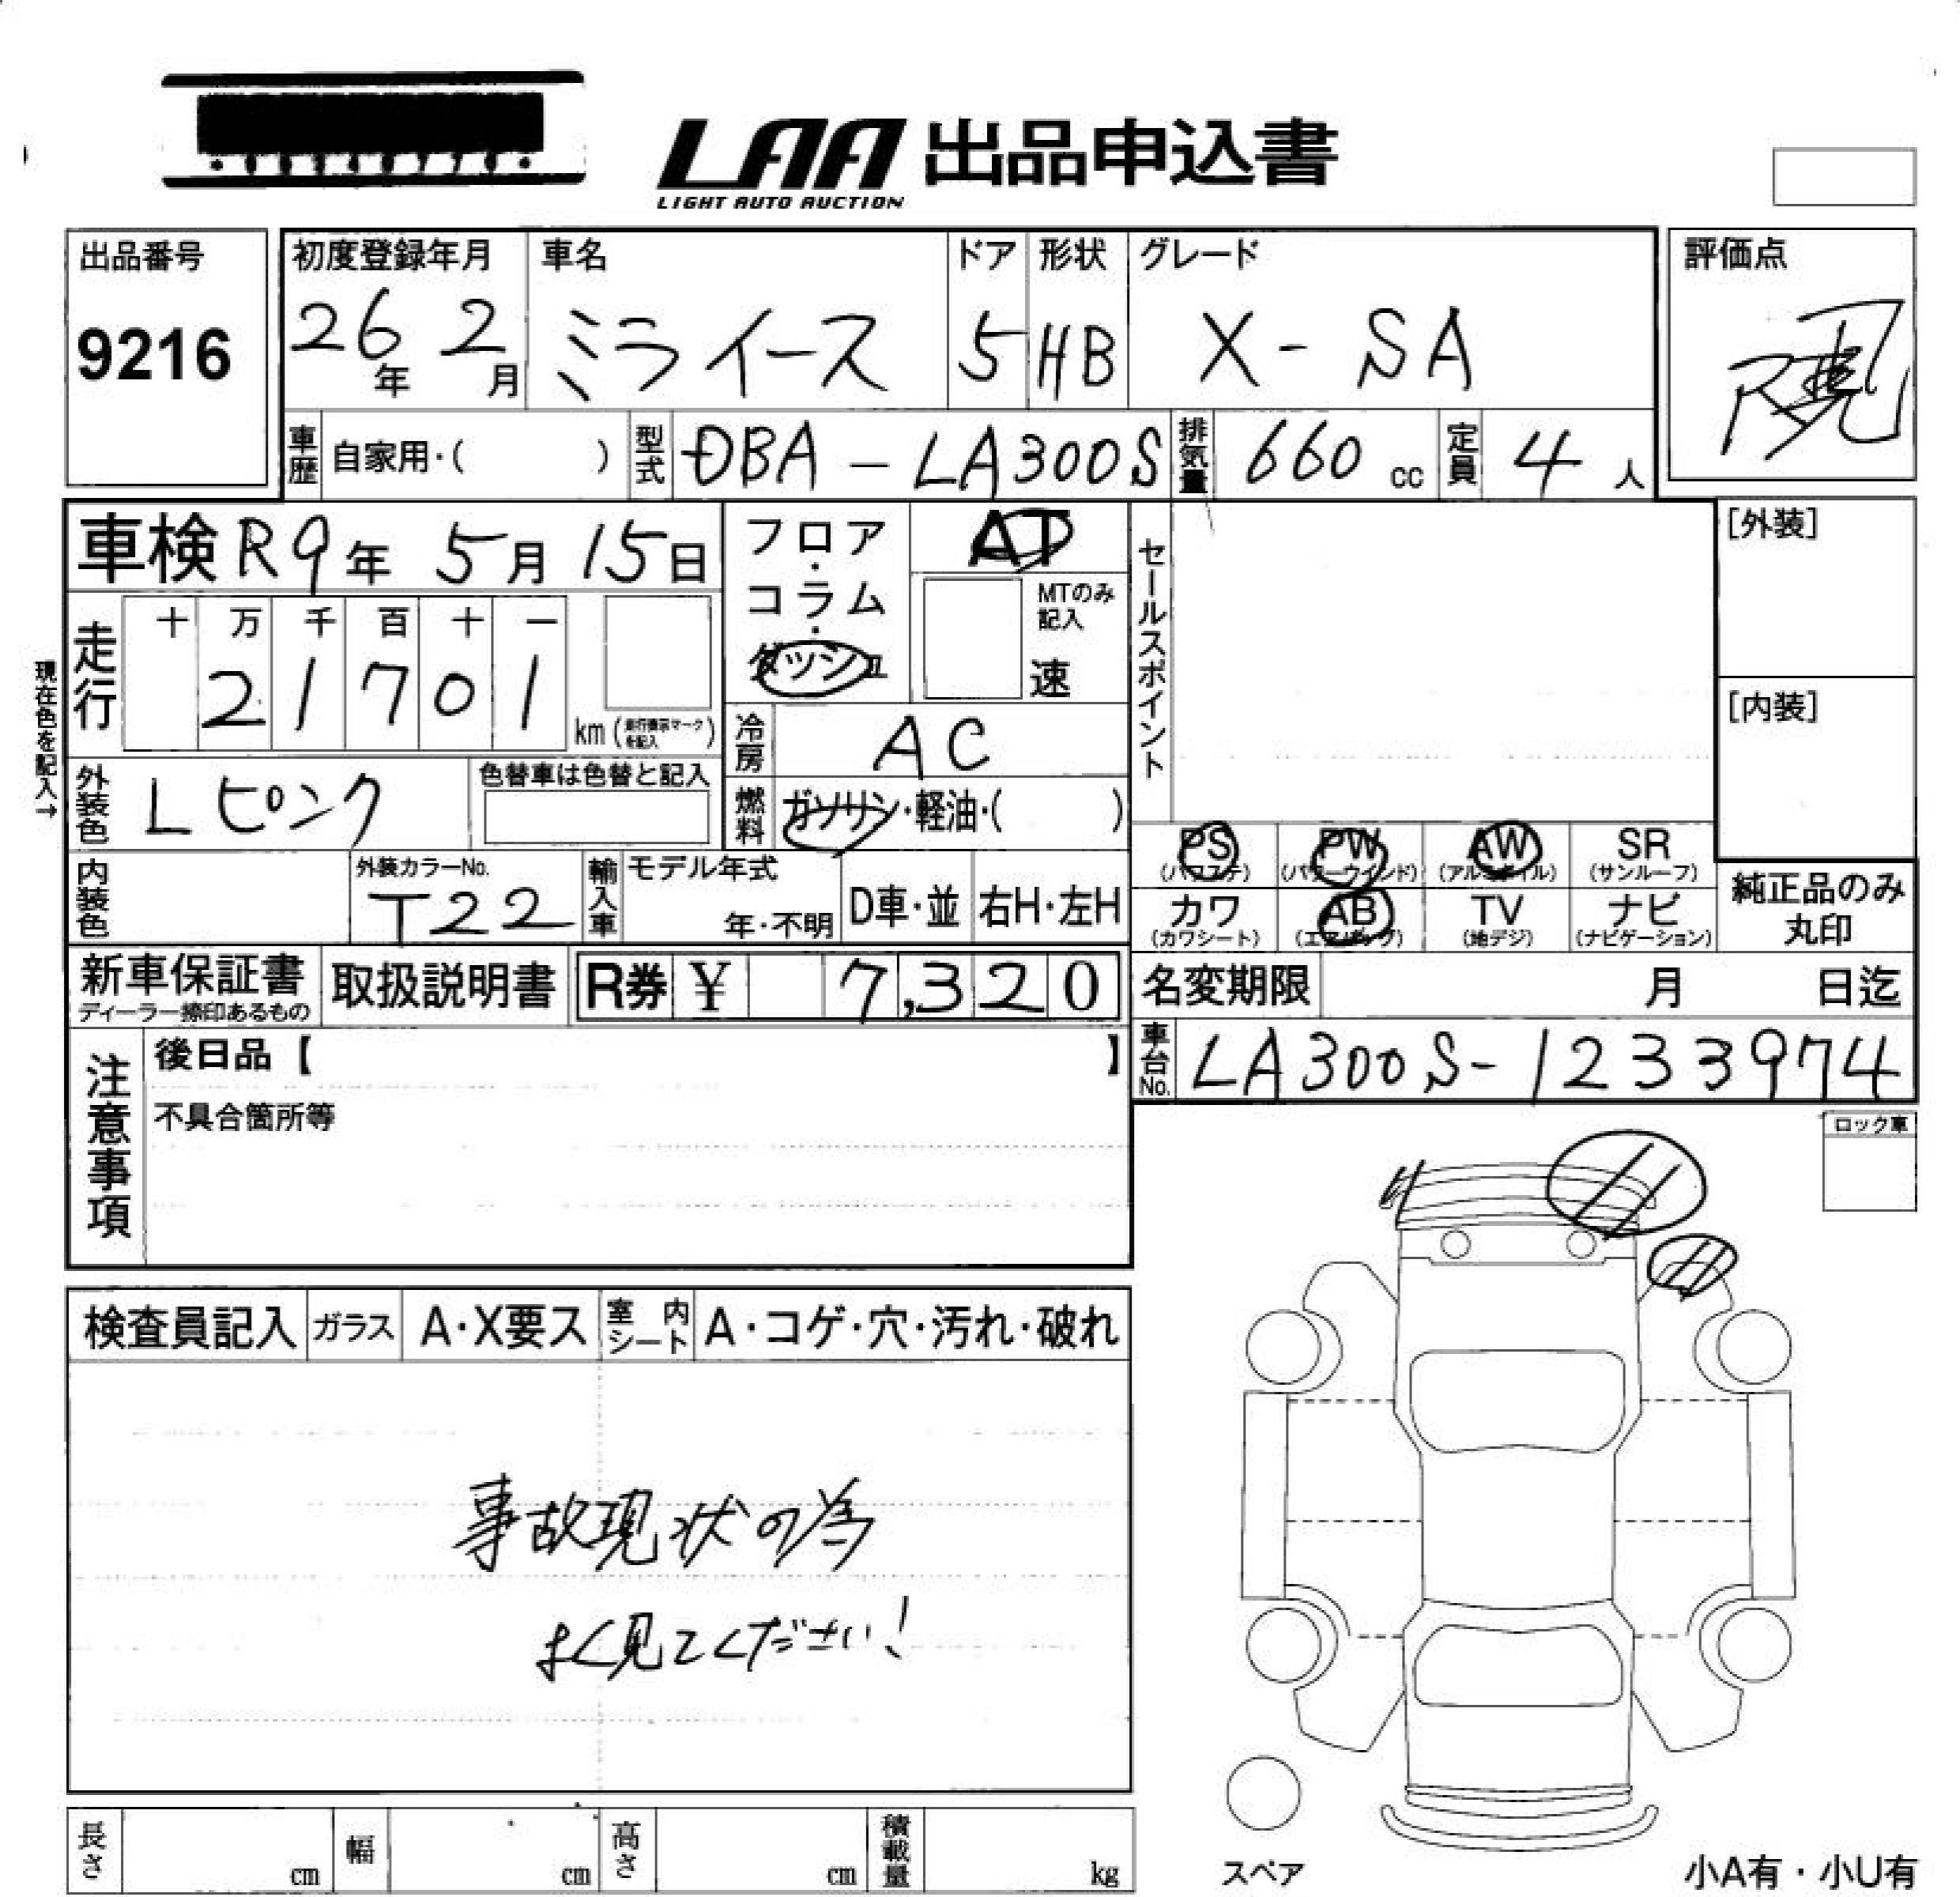 LAA 出品申込書
LIGHT AUTO AUCTION
出品番号
9216
初度登録年月
26年 2月
車名
ミライース
ドア
5
形状
HB
グレード
X-SA
評価点
車歴 自家用・( )
型式 DBA-LA300S
排気量 660 cc
定員 4人
車検 R9年 5月 15日
現在色を記入→
走行
十 万 千 百 十 一
2 1 7 0 1
km (走行表示マークを記入)
フロア・コラム・ダッシュ
AT
MTのみ記入
速
冷房 AC
燃料 ガソリン・軽油・( )
外装色 Lピンク
色替車は色替と記入
内装色
外装カラーNo.
T22
輸入車
モデル年式
年・不明
D車・並
右H・左H
セールスポイント
[外装]
[内装]
PS (パワステ)
PW (パワーウインド)
AW (アルミホイル)
SR (サンルーフ)
カワ (カワシート)
AB (エアバッグ)
TV (地デジ)
ナビ (ナビゲーション)
純正品のみ
丸印
新車保証書
ディーラー捺印あるもの
取扱説明書
R券 ¥ 7,320
名変期限 月 日迄
車台No. LA300S-1233974
注意事項
後日品【 】
不具合箇所等
ロック車
検査員記入
ガラス A・X要ス
室内シート A・コゲ・穴・汚れ・破れ
事故現状の為
よく見てください!
長さ cm
幅 cm
高さ cm
積載量 kg
スペア
小A有・小U有